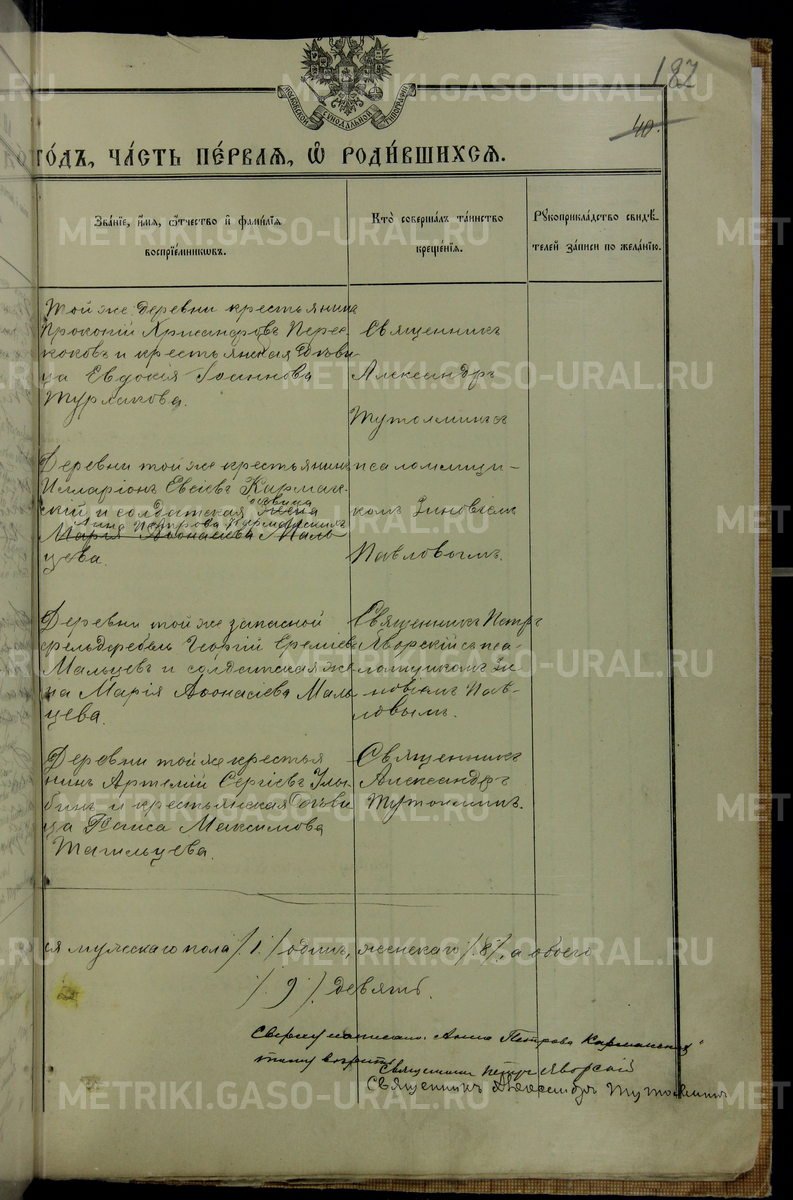 187
40.
МОСКОВСКОЙ СѴНОДАЛЬНОЙ ТИПОГРАФІИ
го́дъ, ча́сть пе́рваѧ, ѡ҆ роди́вшихсѧ.
Зва́нїе, и҆́мѧ, ѻ҆́тчество и҆ фами́лїѧ
воспрїе́мникѡвъ.
Кто̀ соверша́лъ та́инство
креще́нїѧ.
Рꙋкоприкла́дство свидѣ́-
телей за́писи по жела́нїю.
Той же деревни крестьянинъ
Прокопій Пере-
скоковъ и крестьянская дѣви-
ца Евдокія Іоаннова
Турлакова.
Священникъ
Александръ
Тутолминъ съ
Деревни той же крестьянинъ
Илларіонъ Евсіевъ Карман-
скій и солдатская жена
дѣвица
Анна Петрова Карманскихъ
Марія Аѳонасіева Маль-
цева.
псаломщи-
комъ Зиновіемъ
Павловымъ.
Деревни той же запасной
фельдфебель Георгій Ереміевъ
Мальцевъ и солдатская же-
на Марія Аѳонасіева Маль-
цева.
Священникъ Петръ
Яворскій съ пса-
ломщикомъ Зи-
новіемъ Пав-
ловымъ.
Деревни той же крестья
нинъ Артемій Сергіевъ
и крестьянская дѣви
ца Раиса Максимова
Тагильцева.
Священникъ
Александръ
Тутолминъ.
ся мужскаго пола /1/ одинъ, женскаго /8/, а обоего
/9/ девять.
Сверху написано: Анна Петрова Карманскихъ"
тому вѣрить
Священникъ Петръ Яворскій
Священникъ Александръ Тутолминъ
METRIKI.GASO-URAL.RU